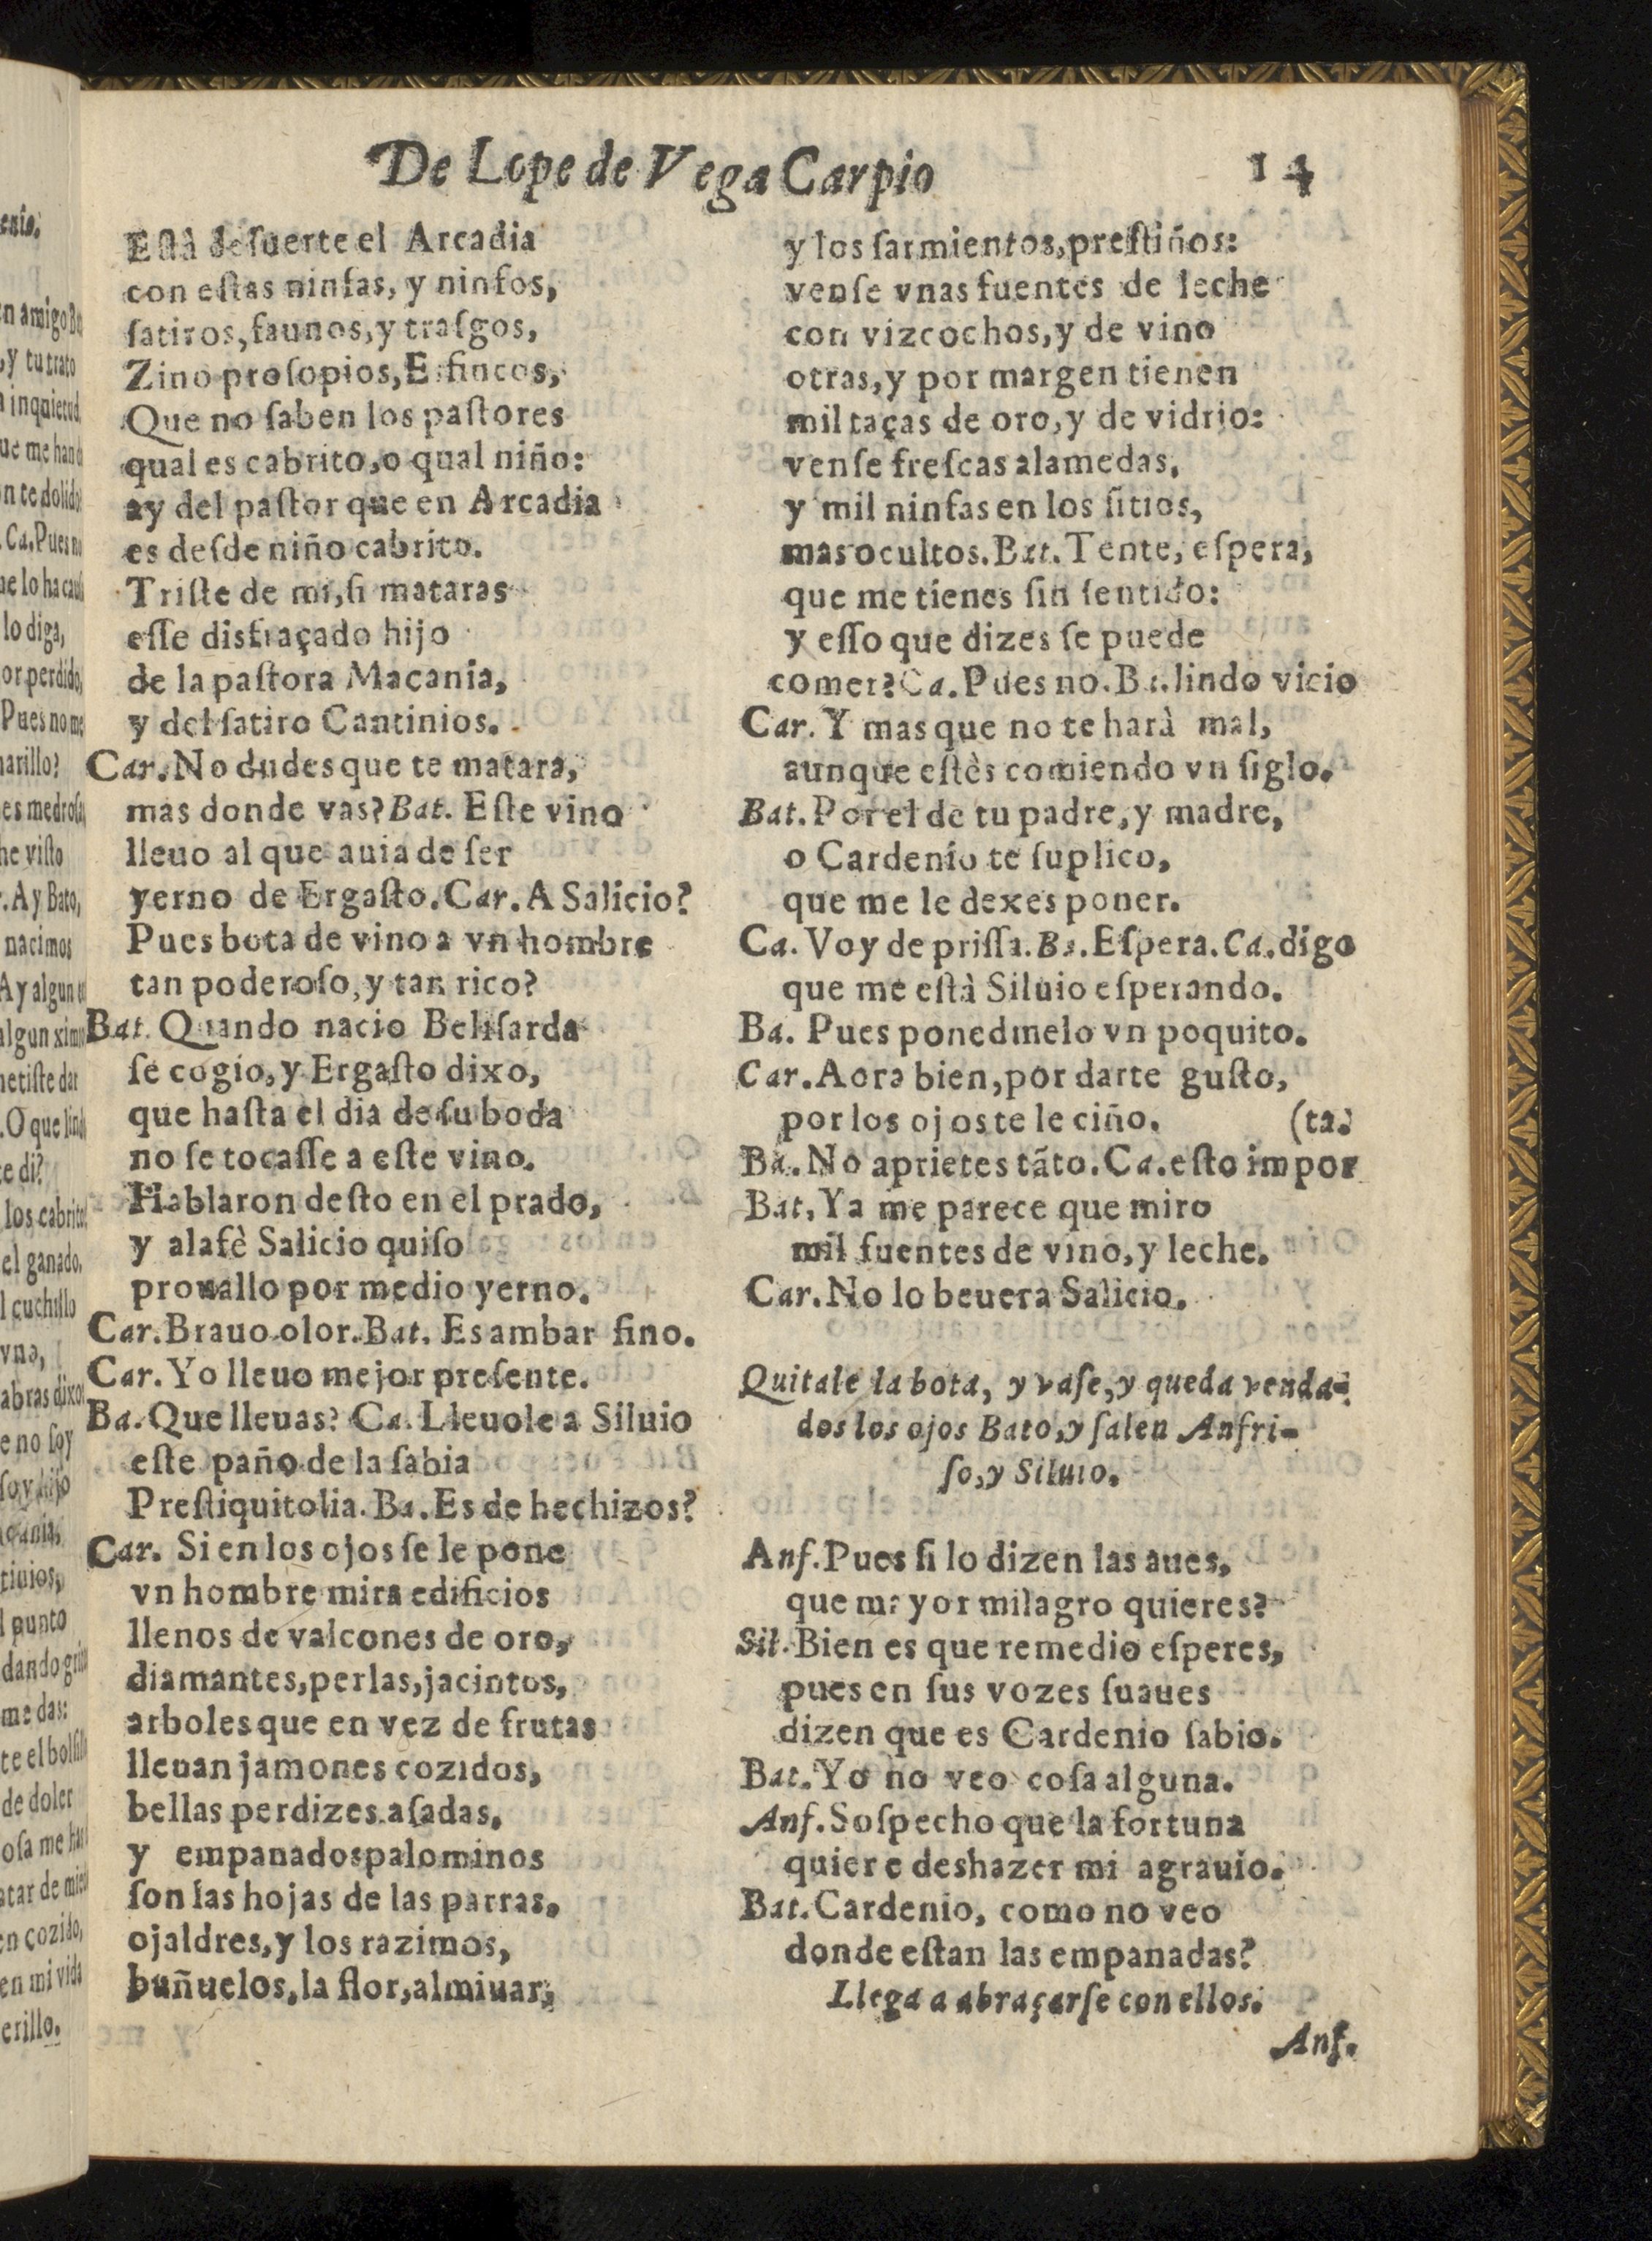 De Lope de Vega Carpio
14
Està de ſuerte el Arcadia
con eſtas ninfas, y ninfos,
ſatiros, faunos, y traſgos,
Zinoproſopios, Esfincos,
Que no ſaben los paſtores
qual es cabrito, o qual niño:
ay del paſtor que en Arcadia
es deſde niño cabrito.
Triſte de mi, ſi mataras
eſſe disfraçado hijo
de la paſtora Macania,
y del ſatiro Cantinios.
Car. No dudes que te matara,
mas donde vas? Bat. Eſte vino
lleuo al que auia de ſer
yerno de Ergaſto. Car. A Salicio?
Pues bota de vino a vn hombre
tan poderoſo, y tan rico?
Bat. Quando nacio Beliſarda
ſe cogio, y Ergaſto dixo,
que haſta el dia de ſu boda
no ſe tocaſſe a eſte vino.
Hablaron deſto en el prado,
y alafè Salicio quiſo
prouallo por medio yerno.
Car. Brauo olor. Bat. Es ambar fino.
Car. Yo lleuo mejor preſente.
Ba. Que lleuas? Ca. Lleuole a Siluio
eſte paño de la ſabia
Preſtiquitolia. Ba. Es de hechizos?
Car. Si en los ojos ſe le pone
vn hombre mira edificios
llenos de valcones de oro,
diamantes, perlas, jacintos,
arboles que en vez de frutas
lleuan jamones cozidos,
bellas perdizes aſadas,
y empanados palominos
ſon las hojas de las parras,
ojaldres, y los razimos,
buñuelos, la flor, almiuar,
y los ſarmientos, preſtiños:
venſe vnas fuentes de leche
con vizcochos, y de vino
otras, y por margen tienen
mil taças de oro, y de vidrio:
venſe freſcas alamedas,
y mil ninfas en los ſitios,
mas ocultos. Bat. Tente, eſpera,
que me tienes ſin ſentido:
y eſſo que dizes ſe puede
comer? Ca. Pues no. Ba. lindo vicio
Car. Y mas que no te harà mal,
aunque eſtès comiendo vn ſiglo.
Bat. Por el de tu padre, y madre,
o Cardenio te ſuplico,
que me le dexes poner.
Ca. Voy de priſſa. Ba. Eſpera. Ca. digo
que me eſtà Siluio eſperando.
Ba. Pues ponedmelo vn poquito.
Car. Aora bien, por darte guſto,
por los ojos te le ciño. (ta.
Ba. No aprietes tãto. Ca. eſto impor
Bat, Ya me parece que miro
mil fuentes de vino, y leche.
Car. No lo beuera Salicio.
Quitale la bota, y vaſe, y queda venda-
dos los ojos Bato, y ſalen Anfri-
ſo, y Siluio.
Anf. Pues ſi lo dizen las aues,
que mayor milagro quieres?
Sil. Bien es que remedio eſperes,
pues en ſus vozes ſuaues
dizen que es Cardenio ſabio.
Bat. Yo no veo coſa alguna.
Anf. Soſpecho que la fortuna
quiere deshazer mi agrauio.
Bat. Cardenio, como no veo
donde eſtan las empanadas?
Llega a abraçarſe con ellos.
Anf.